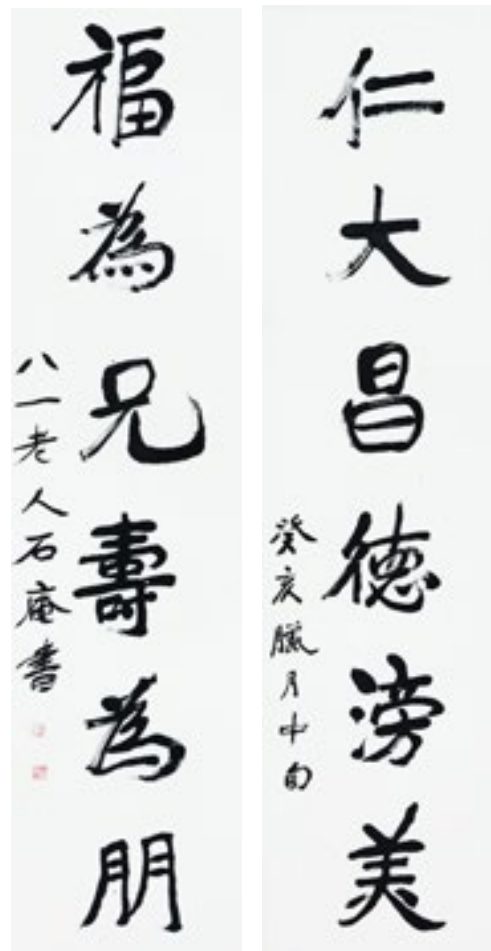 仁大昌德滂美
癸亥臘月中旬
福為兄壽為朋
八一老人石庵書